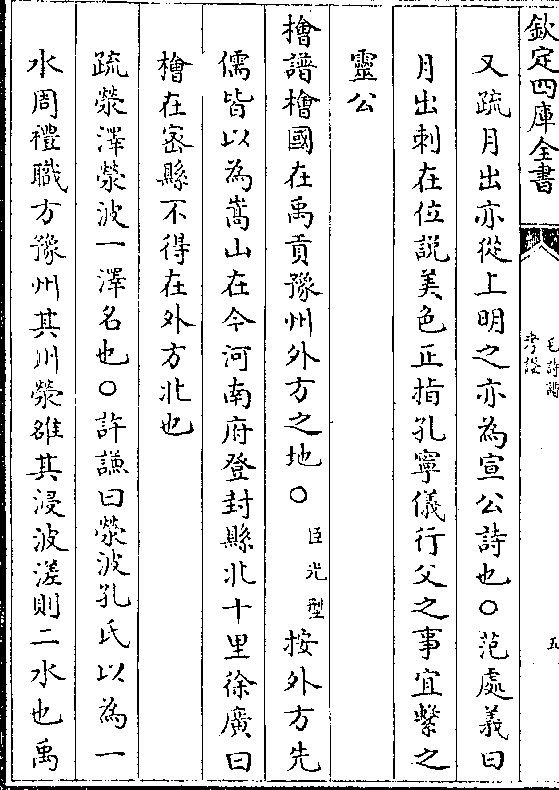 欽定四庫全書
毛詩譜
考證
五
又疏月出亦從上明之亦為宣公詩也○范處義曰
月出刺在位説美色正指孔寧儀行父之事宜繫之
靈公
檜譜檜國在禹貢豫州外方之地○臣光型按外方先
儒皆以為嵩山在今河南府登封縣北十里徐廣曰
檜在宻縣不得在外方北也
疏滎澤滎波一澤名也○許謙曰滎波孔氏以為一
水周禮職方豫州其川滎雒其浸波溠則二水也禹